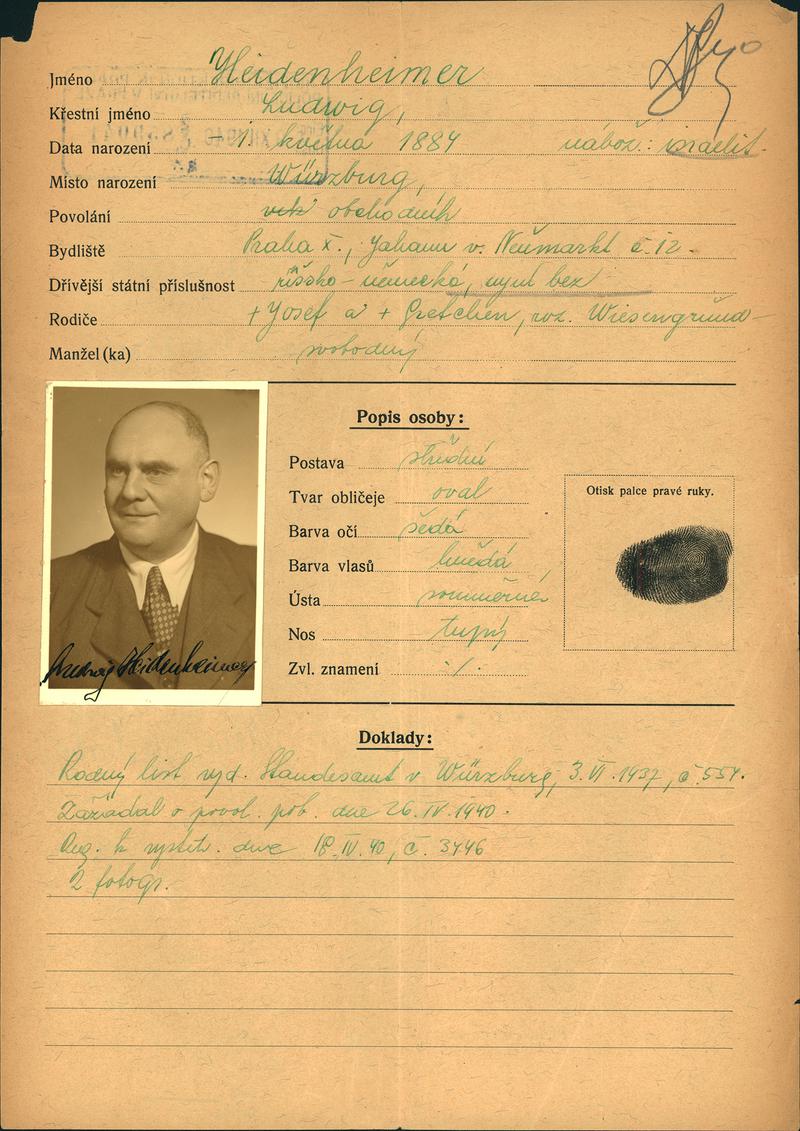 Jméno Heidenheimer
Křestní jméno Ludwig,
Data narození - 1. května 1884 nábož.: israelit.
Místo narození Würzburg,
Povolání obchodník
Bydliště Praha X., Johann v. Neumarkt č 12.
Dřívější státní příslušnost říšsko-německá, nyní bez
Rodiče + Josef a + Gretchen, roz. Wiesengrund
Manžel(ka) svobodný
Popis osoby:
Postava střední
Tvar obličeje oval
Barva očí šedá
Barva vlasů hnědá
Ústa souměrné
Nos tupý
Zvl. znamení ·/·
Otisk palce pravé ruky.
Ludwig Heidenheimer
Doklady:
Rodný list vyd. Standesamt v Würzburg, 3. VI. 1937, č 554.
Zažádal o povol. pob. dne 26. IV. 1940.
k vystěh. dne 18. IV. 40, č. 3446
2 fotogr.